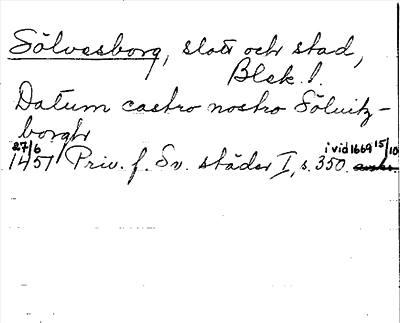 Sölvesborg, slott och stad,
Blek. l.
Datum castro nostro Sölvitz-
borgh
27/6 1451 Priv. f. Sv. städer I, s. 350. i vid 1669 15/10